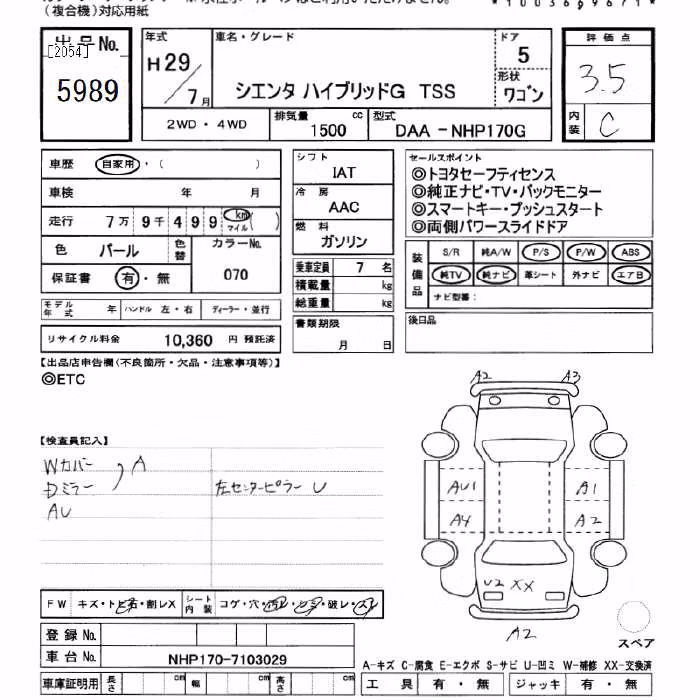 (複合機)対応用紙
出品No.
[2054]
5989
年式
H29/7月
車名・グレード
シエンタ ハイブリッドG TSS
ドア
5
形状
ワゴン
評価点
3.5
内装
C
2WD・4WD
排気量
1500 cc
型式
DAA-NHP170G
車歴 自家用・( )
車検 年 月
走行 7万9千499 km マイル ( )
色 パール
色替
カラーNo.
070
保証書 有・無
モデル年式 年 ハンドル 左・右 ディーラー・並行
リサイクル料金 10,360 円 預託済
シフト
IAT
冷房
AAC
燃料
ガソリン
乗車定員 7 名
積載量 kg
総重量 kg
書類期限
月 日
セールスポイント
◎トヨタセーフティセンス
◎純正ナビ・TV・バックモニター
◎スマートキー・プッシュスタート
◎両側パワースライドドア
装備品
S/R 純A/W P/S P/W ABS
純TV 純ナビ 革シート 外ナビ エアB
ナビ型番:
後日品
【出品店申告欄(不良箇所・欠品・注意事項等)】
◎ETC
【検査員記入】
Wカバー
Dミラー
A
AU
左センターピラー U
A2 A3
AU1 A1
A4 A2
U2 XX
A2
スペア
FW キズ・トビ石・割レX
シート内装 コゲ・穴・汚レ・シミ・破レ・スレ
登録No.
車台No. NHP170-7103029
車庫証明用 長さ cm 幅 cm 高さ cm
A-キズ C-腐食 E-エクボ S-サビ U-凹ミ W-補修 XX-交換済
工具 有・無 ジャッキ 有・無